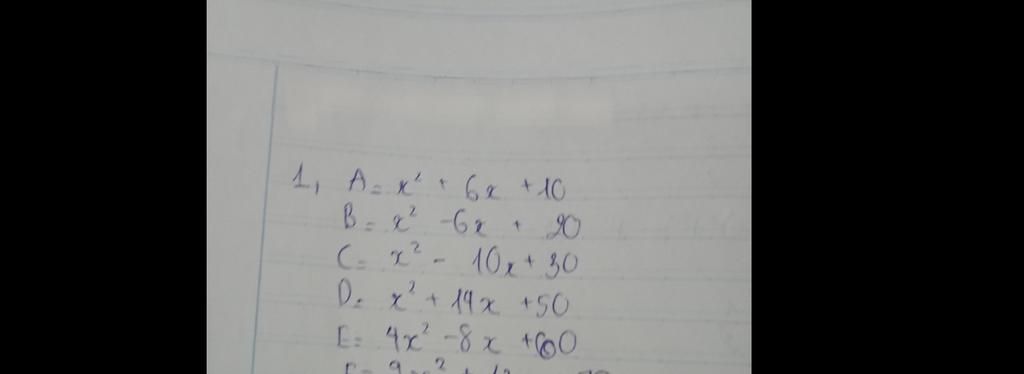 1, A = x² + 6x + 10
B = x² - 6x + 20
C = x² - 10x + 30
D = x² + 14x + 50
E = 4x² - 8x + 60